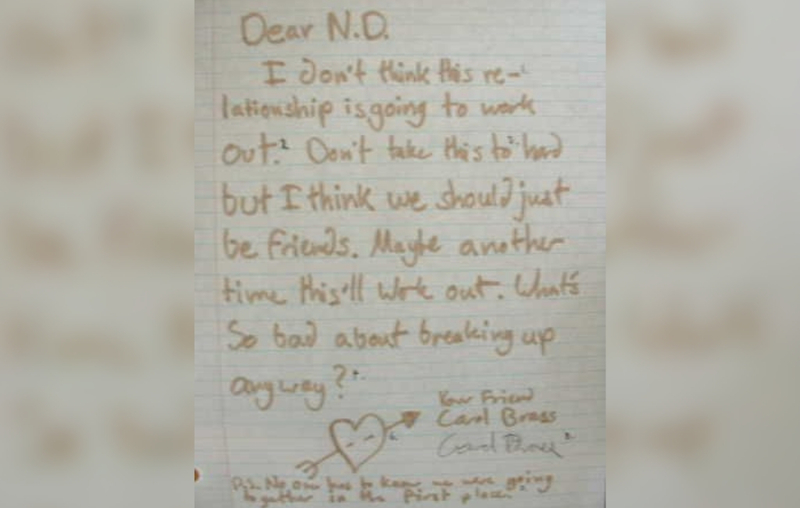 Dear N.D.
I don't think this re-
lationship is going to work
out. Don't take this to hard
but I think we should just
be friends. Maybe another
time this'll work out. What's
So bad about breaking up
anyway?
Your Friend
Carol Brass
Carol Brass
P.S. No one has to know we were going
together in the first place.